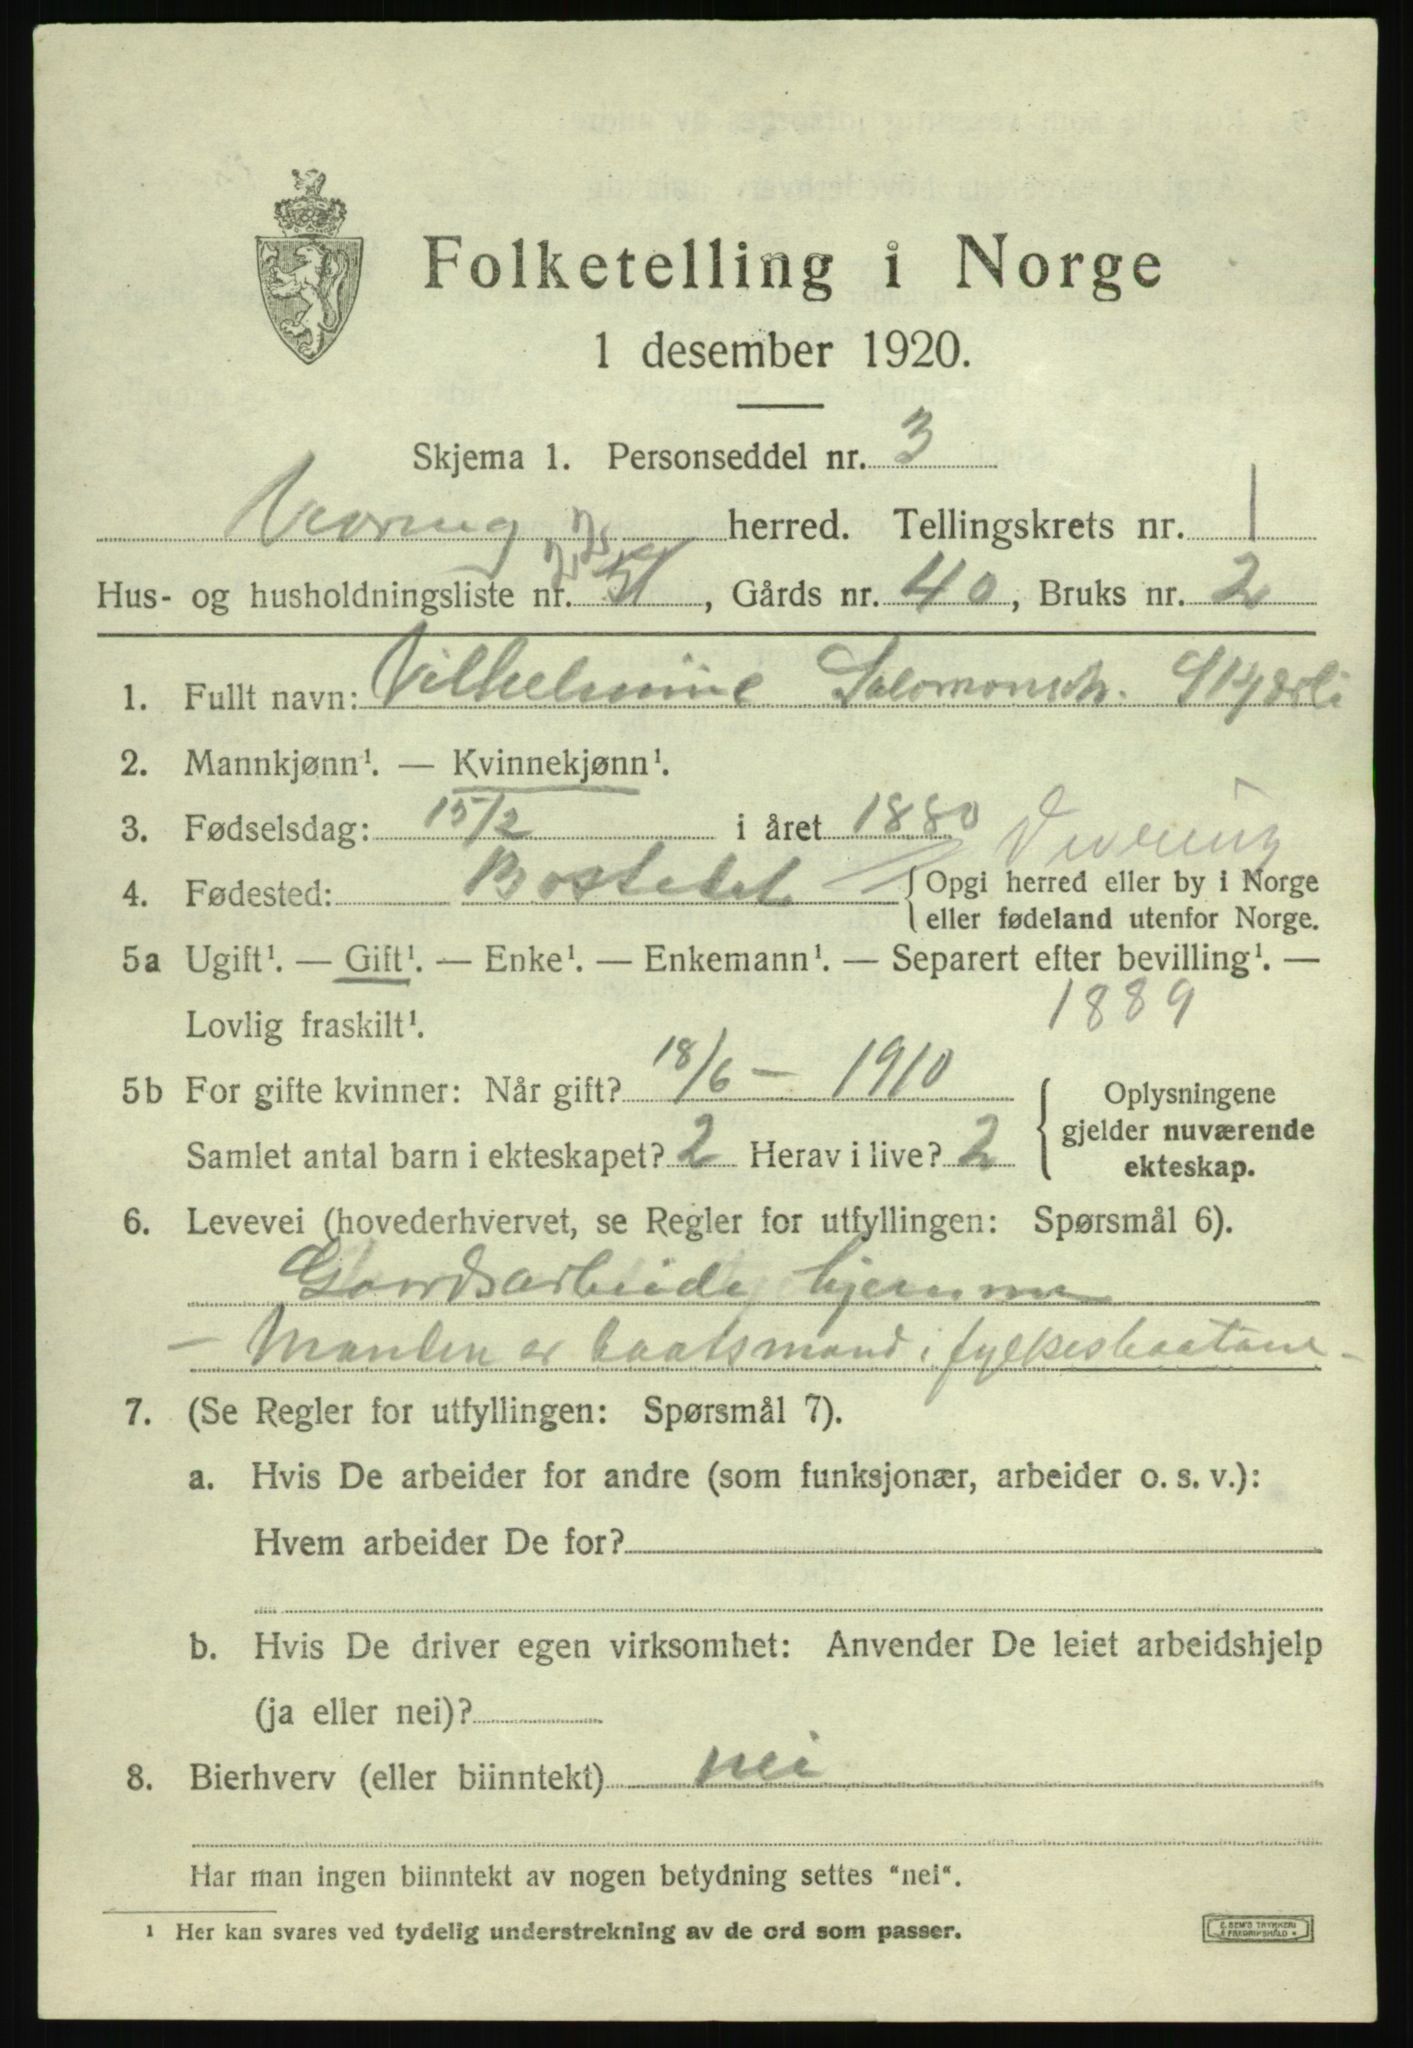 Folketelling i Norge
1 desember 1920.
Skjema 1. Personseddel nr. 3
Vevring herred. Tellingskrets nr. 1
Hus- og husholdningsliste nr. 51, Gårds nr. 40, Bruks nr. 2
1. Fullt navn: Vilhelmine Salomonsdt. Skjærli
2. Mannkjønn¹. — Kvinnekjønn¹.
3. Fødselsdag: 15/2 i året 1880
Vevring
4. Fødested: Bostedet { Opgi herred eller by i Norge
eller fødeland utenfor Norge.
5a Ugift¹. — Gift¹. — Enke¹. — Enkemann¹. — Separert efter bevilling¹. —
Lovlig fraskilt¹. 1889
5b For gifte kvinner: Når gift? 18/6 – 1910 { Oplysningene
gjelder nuværende
Samlet antal barn i ekteskapet? 2 Herav i live? 2 ekteskap.
6. Levevei (hovederhvervet, se Regler for utfyllingen: Spørsmål 6).
Gaardsarbeide hjemme
– Manden er baatsmand i fylkesbaatane –
7. (Se Regler for utfyllingen: Spørsmål 7).
a. Hvis De arbeider for andre (som funksjonær, arbeider o. s. v.):
Hvem arbeider De for?
b. Hvis De driver egen virksomhet: Anvender De leiet arbeidshjelp
(ja eller nei)?
8. Bierhverv (eller biinntekt) nei
Har man ingen biinntekt av nogen betydning settes "nei".
¹ Her kan svares ved tydelig understrekning av de ord som passer.
E. SEM'S TRYKKERI
FREDRIKSHALD